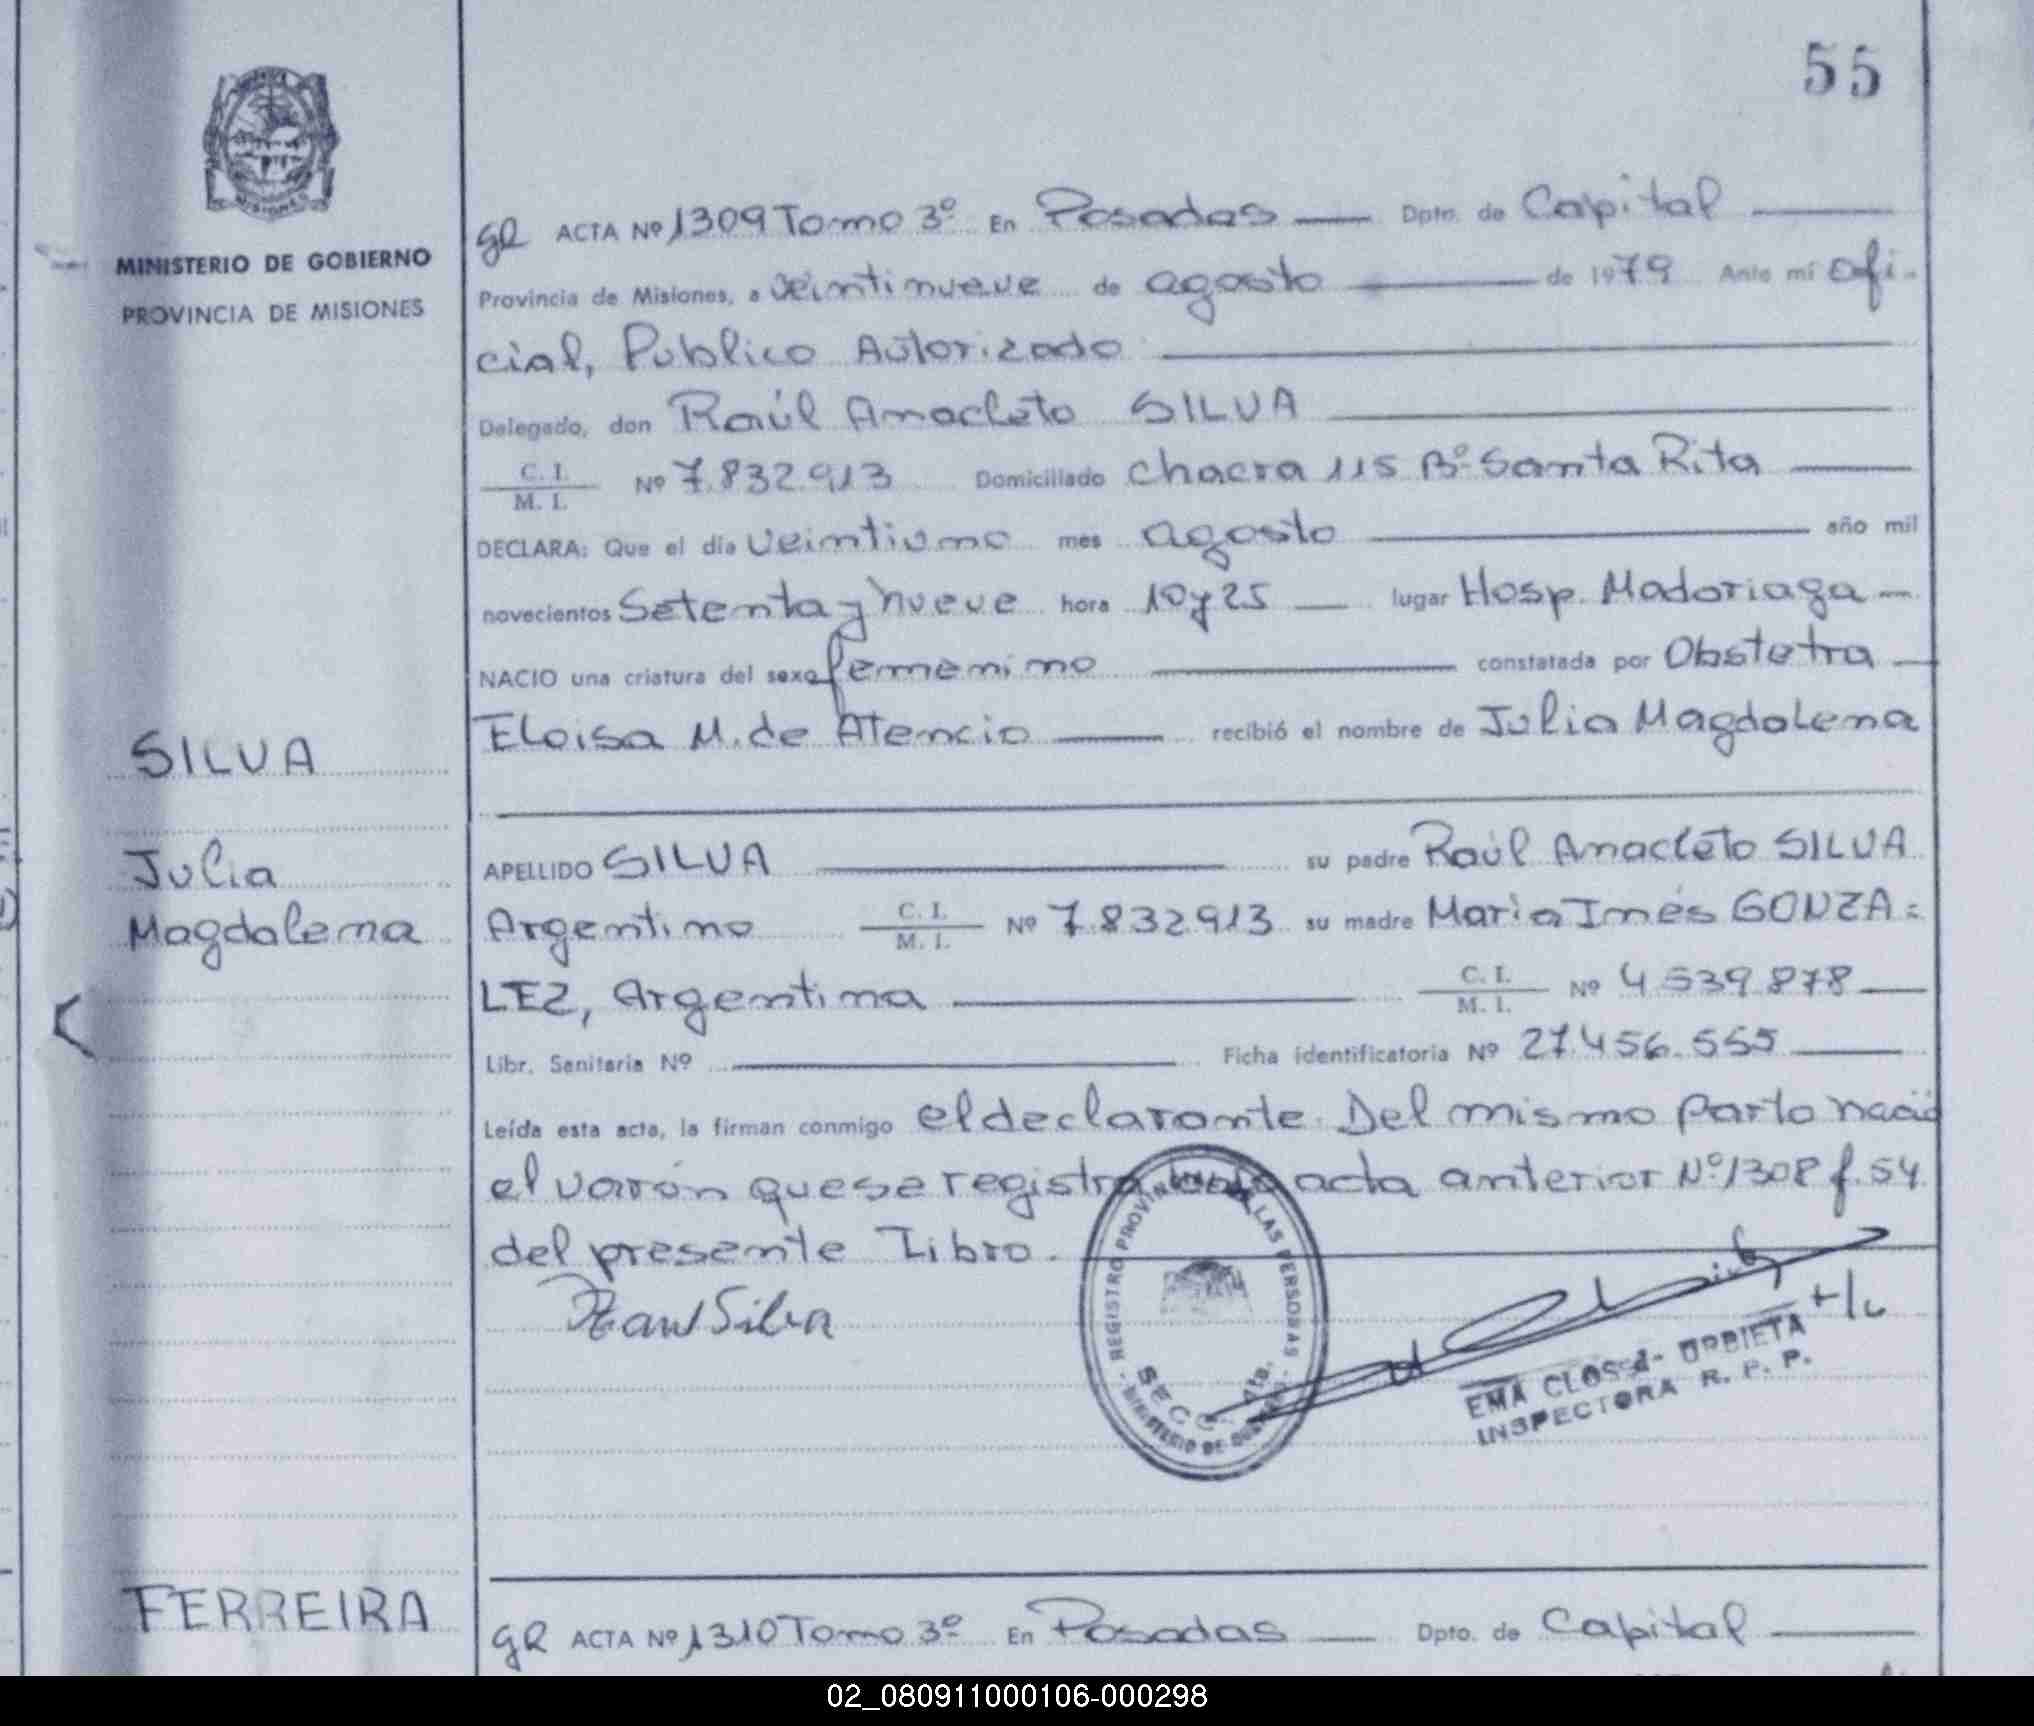 55
MISIONES
MINISTERIO DE GOBIERNO
PROVINCIA DE MISIONES
gR ACTA Nº 1309 Tomo 3º En Posadas Dpto. de Capital
Provincia de Misiones, a veintinueve de agosto de 1979 Ante mí ofi-
cial, Publico Autorizado
Delegado, don Raúl Anacleto SILVA
C. I. / M. I. Nº 7.832.913 Domiciliado Chacra 115 Bº Santa Rita
DECLARA: Que el día veintiuno mes agosto año mil
novecientos Setenta y nueve hora 10 y 25 lugar Hosp. Madoriaga
NACIO una criatura del sexo femenino constatada por Obstetra
Eloisa M. de Atencio recibió el nombre de Julia Magdalena
SILVA
Julia
Magdalena
APELLIDO SILVA su padre Raúl Anacleto SILVA
Argentino C. I. / M. I. Nº 7.832.913 su madre Maria Inés GONZA=
LEZ, Argentina C. I. / M. I. Nº 4.539.878
Libr. Sanitaria Nº Ficha identificatoria Nº 27.456.555
Leída esta acta, la firman conmigo el declarante. Del mismo parto nació
el varón que se registra bajo acta anterior Nº 1308 f. 54
del presente Libro.
Raul Silva
REGISTRO PROVINCIAL DE LAS PERSONAS
SECC. 4ta.
MINISTERIO DE GOBIERNO
EMA CLOSS de URBIETA
INSPECTORA R. P. P.
FERREIRA
gR ACTA Nº 1310 Tomo 3º En Posadas Dpto. de Capital
02_080911000106-000298